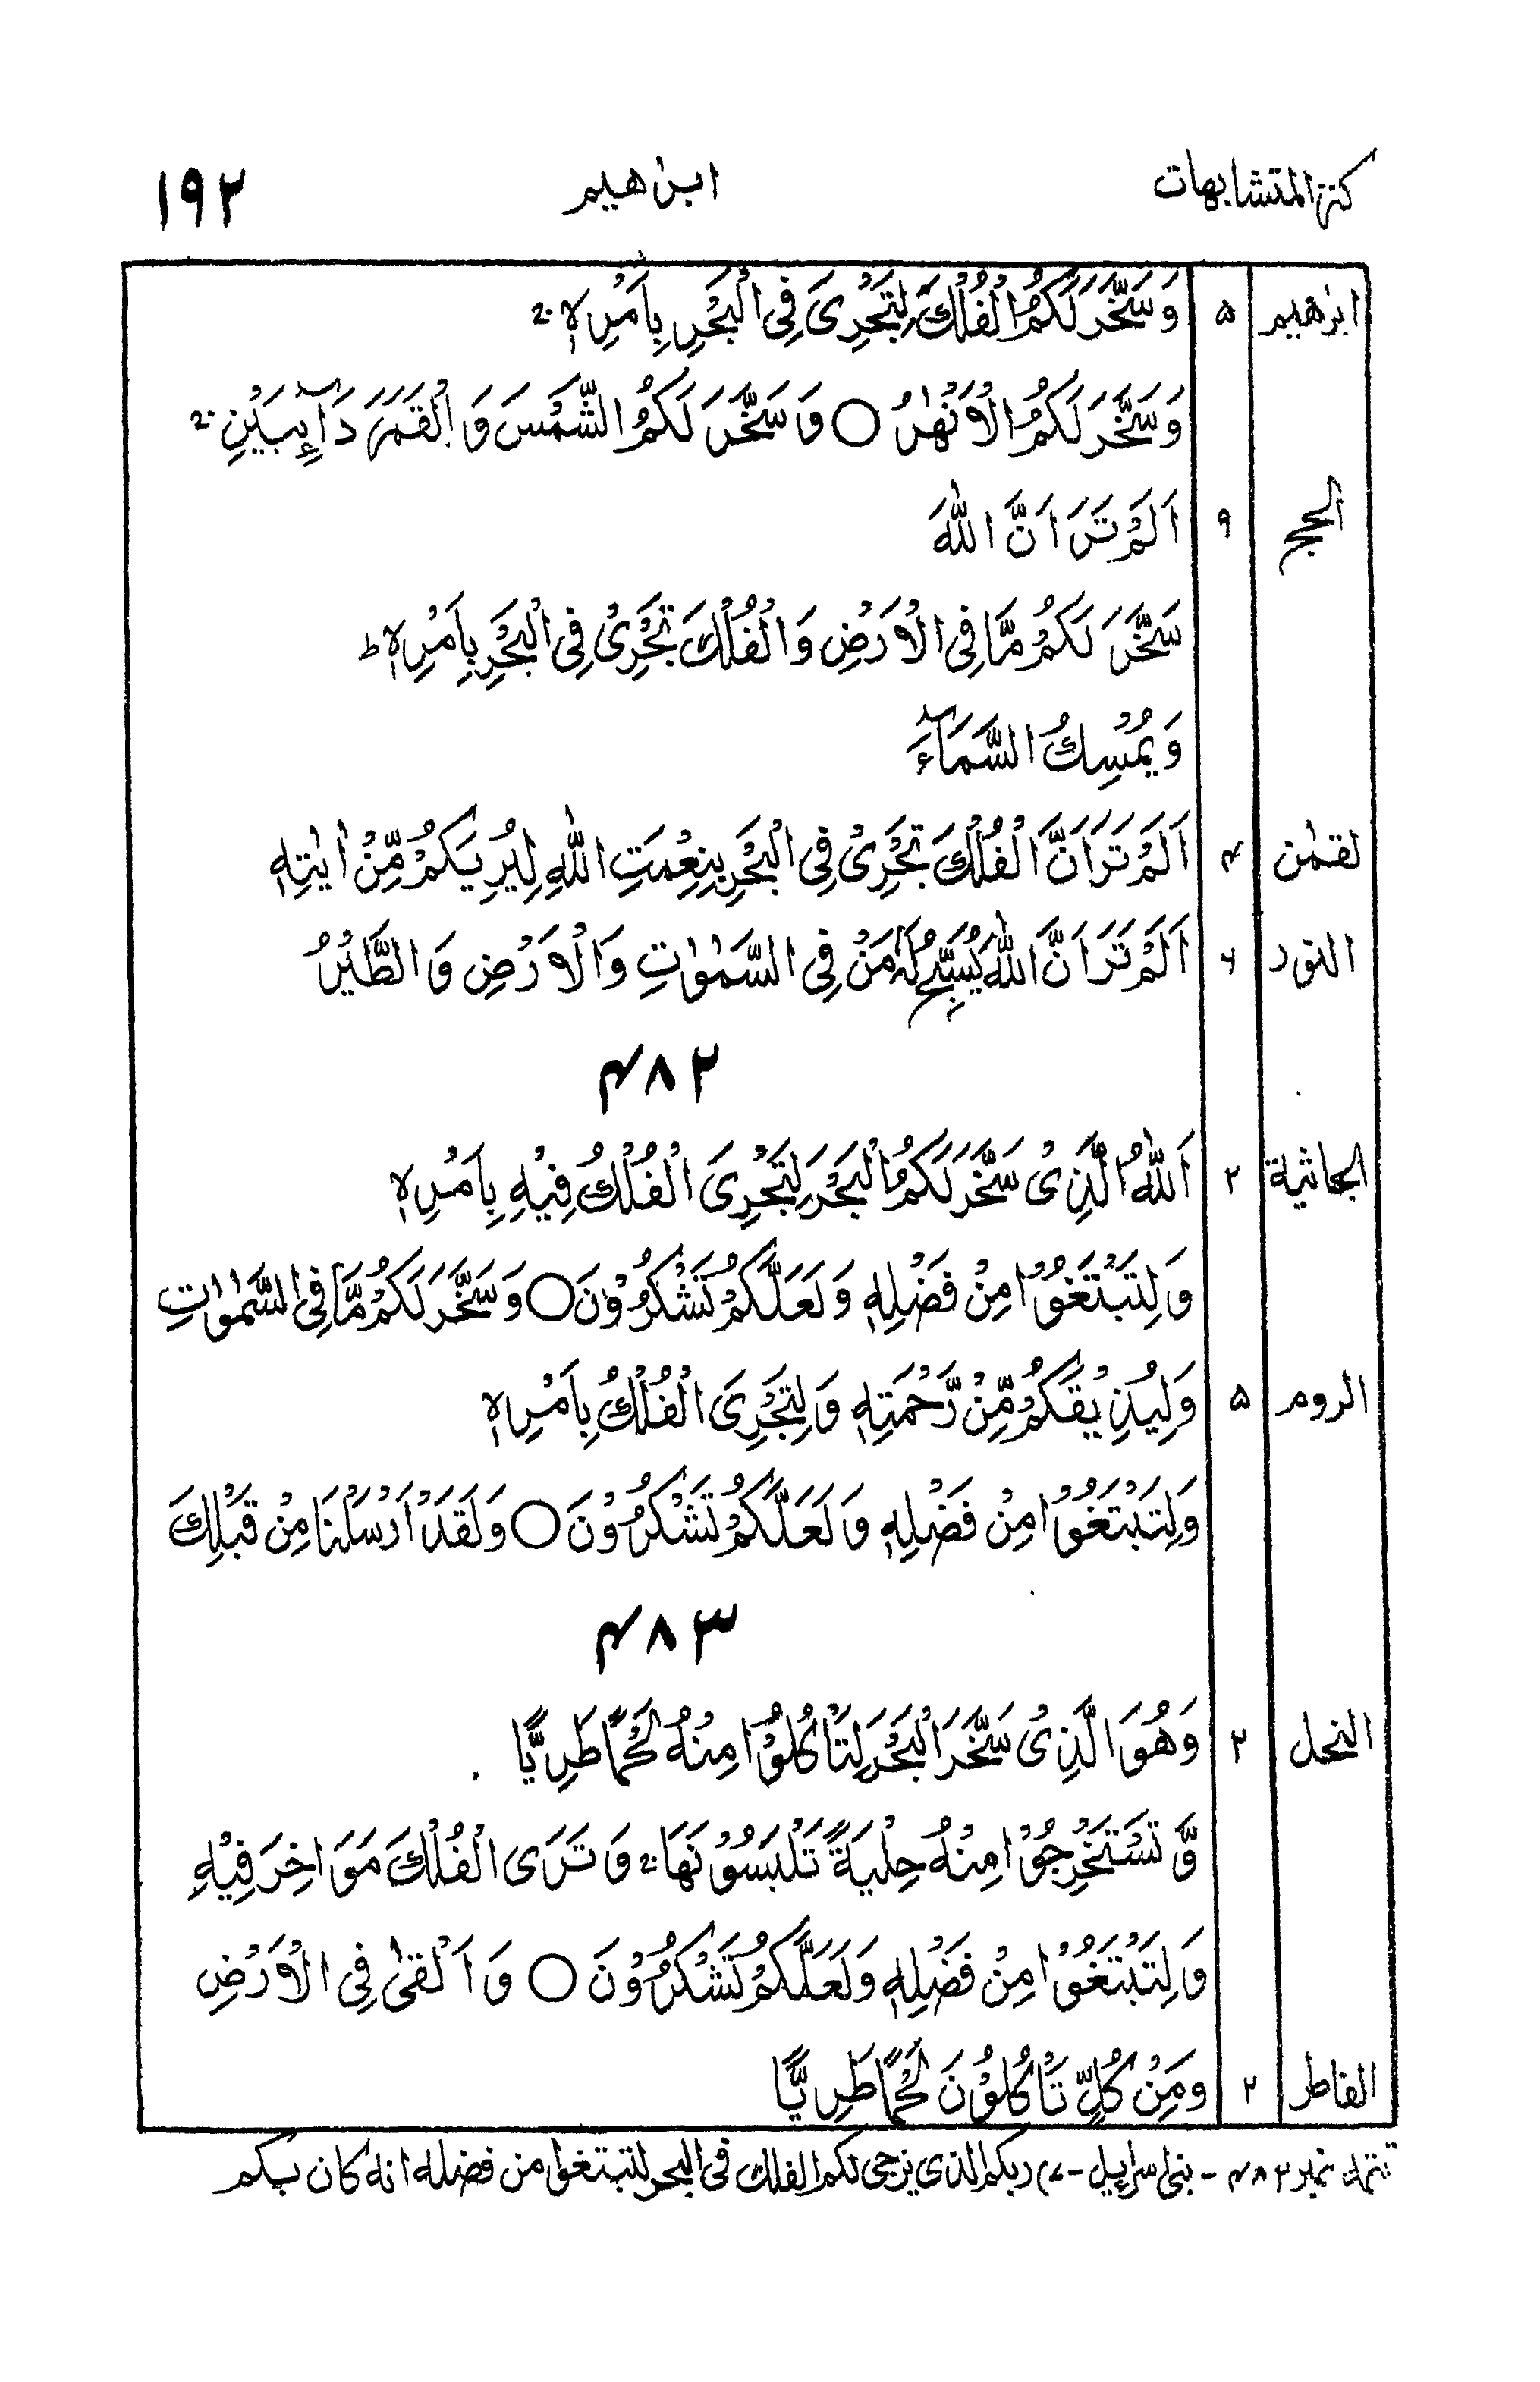 كنز المتشابهات ابرٰهيم ١٩٢
ابرٰهيم ۵ وَسَخَّرَ لَكُمُ الْفُلْكَ لِتَجْرِىَ فِى الْبَحْرِ بِاَمْرِهٖ ۚ
وَسَخَّرَ لَكُمُ الْاَنْهٰرَ ○ وَ سَخَّرَ لَكُمُ الشَّمْسَ وَ الْقَمَرَ دَآئِبَيْنِ ۚ
الحج ۹ اَلَمْ تَرَ اَنَّ اللّٰهَ
سَخَّرَ لَكُمْ مَّا فِى الْاَرْضِ وَ الْفُلْكَ تَجْرِىْ فِى الْبَحْرِ بِاَمْرِهٖ ؕ
وَ يُمْسِكُ السَّمَآءَ
لقمٰن ۴ اَلَمْ تَرَ اَنَّ الْفُلْكَ تَجْرِىْ فِى الْبَحْرِ بِنِعْمَتِ اللّٰهِ لِيُرِيَكُمْ مِّنْ اٰيٰتِهٖ
النور ۶ اَلَمْ تَرَ اَنَّ اللّٰهَ يُسَبِّحُ لَهٗ مَنْ فِى السَّمٰوٰتِ وَ الْاَرْضِ وَ الطَّيْرُ
۴۸۲
الجاثية ۲ اَللّٰهُ الَّذِىْ سَخَّرَ لَكُمُ الْبَحْرَ لِتَجْرِىَ الْفُلْكُ فِيْهِ بِاَمْرِهٖ
وَ لِتَبْتَغُوْا مِنْ فَضْلِهٖ وَ لَعَلَّكُمْ تَشْكُرُوْنَ ○ وَ سَخَّرَ لَكُمْ مَّا فِى السَّمٰوٰتِ
الروم ۵ وَ لِيُذِيْقَكُمْ مِّنْ رَّحْمَتِهٖ وَ لِتَجْرِىَ الْفُلْكُ بِاَمْرِهٖ
وَ لِتَبْتَغُوْا مِنْ فَضْلِهٖ وَ لَعَلَّكُمْ تَشْكُرُوْنَ ○ وَ لَقَدْ اَرْسَلْنَا مِنْ قَبْلِكَ
۴۸۳
النحل ۲ وَ هُوَ الَّذِىْ سَخَّرَ الْبَحْرَ لِتَاْكُلُوْا مِنْهُ لَحْمًا طَرِيًّا
وَّ تَسْتَخْرِجُوْا مِنْهُ حِلْيَةً تَلْبَسُوْنَهَا ۚ وَ تَرَى الْفُلْكَ مَوَاخِرَ فِيْهِ
وَ لِتَبْتَغُوْا مِنْ فَضْلِهٖ وَ لَعَلَّكُمْ تَشْكُرُوْنَ ○ وَ اَلْقٰى فِى الْاَرْضِ
الفاطر ۲ وَمِنْ كُلٍّ تَاْكُلُوْنَ لَحْمًا طَرِيًّا
تتمة نمبر ۴۸۲ - بنى اسرائيل - ۷) ربكم الذى يزجى لكم الفلك فى البحر لتبتغوا من فضله انه كان بكم